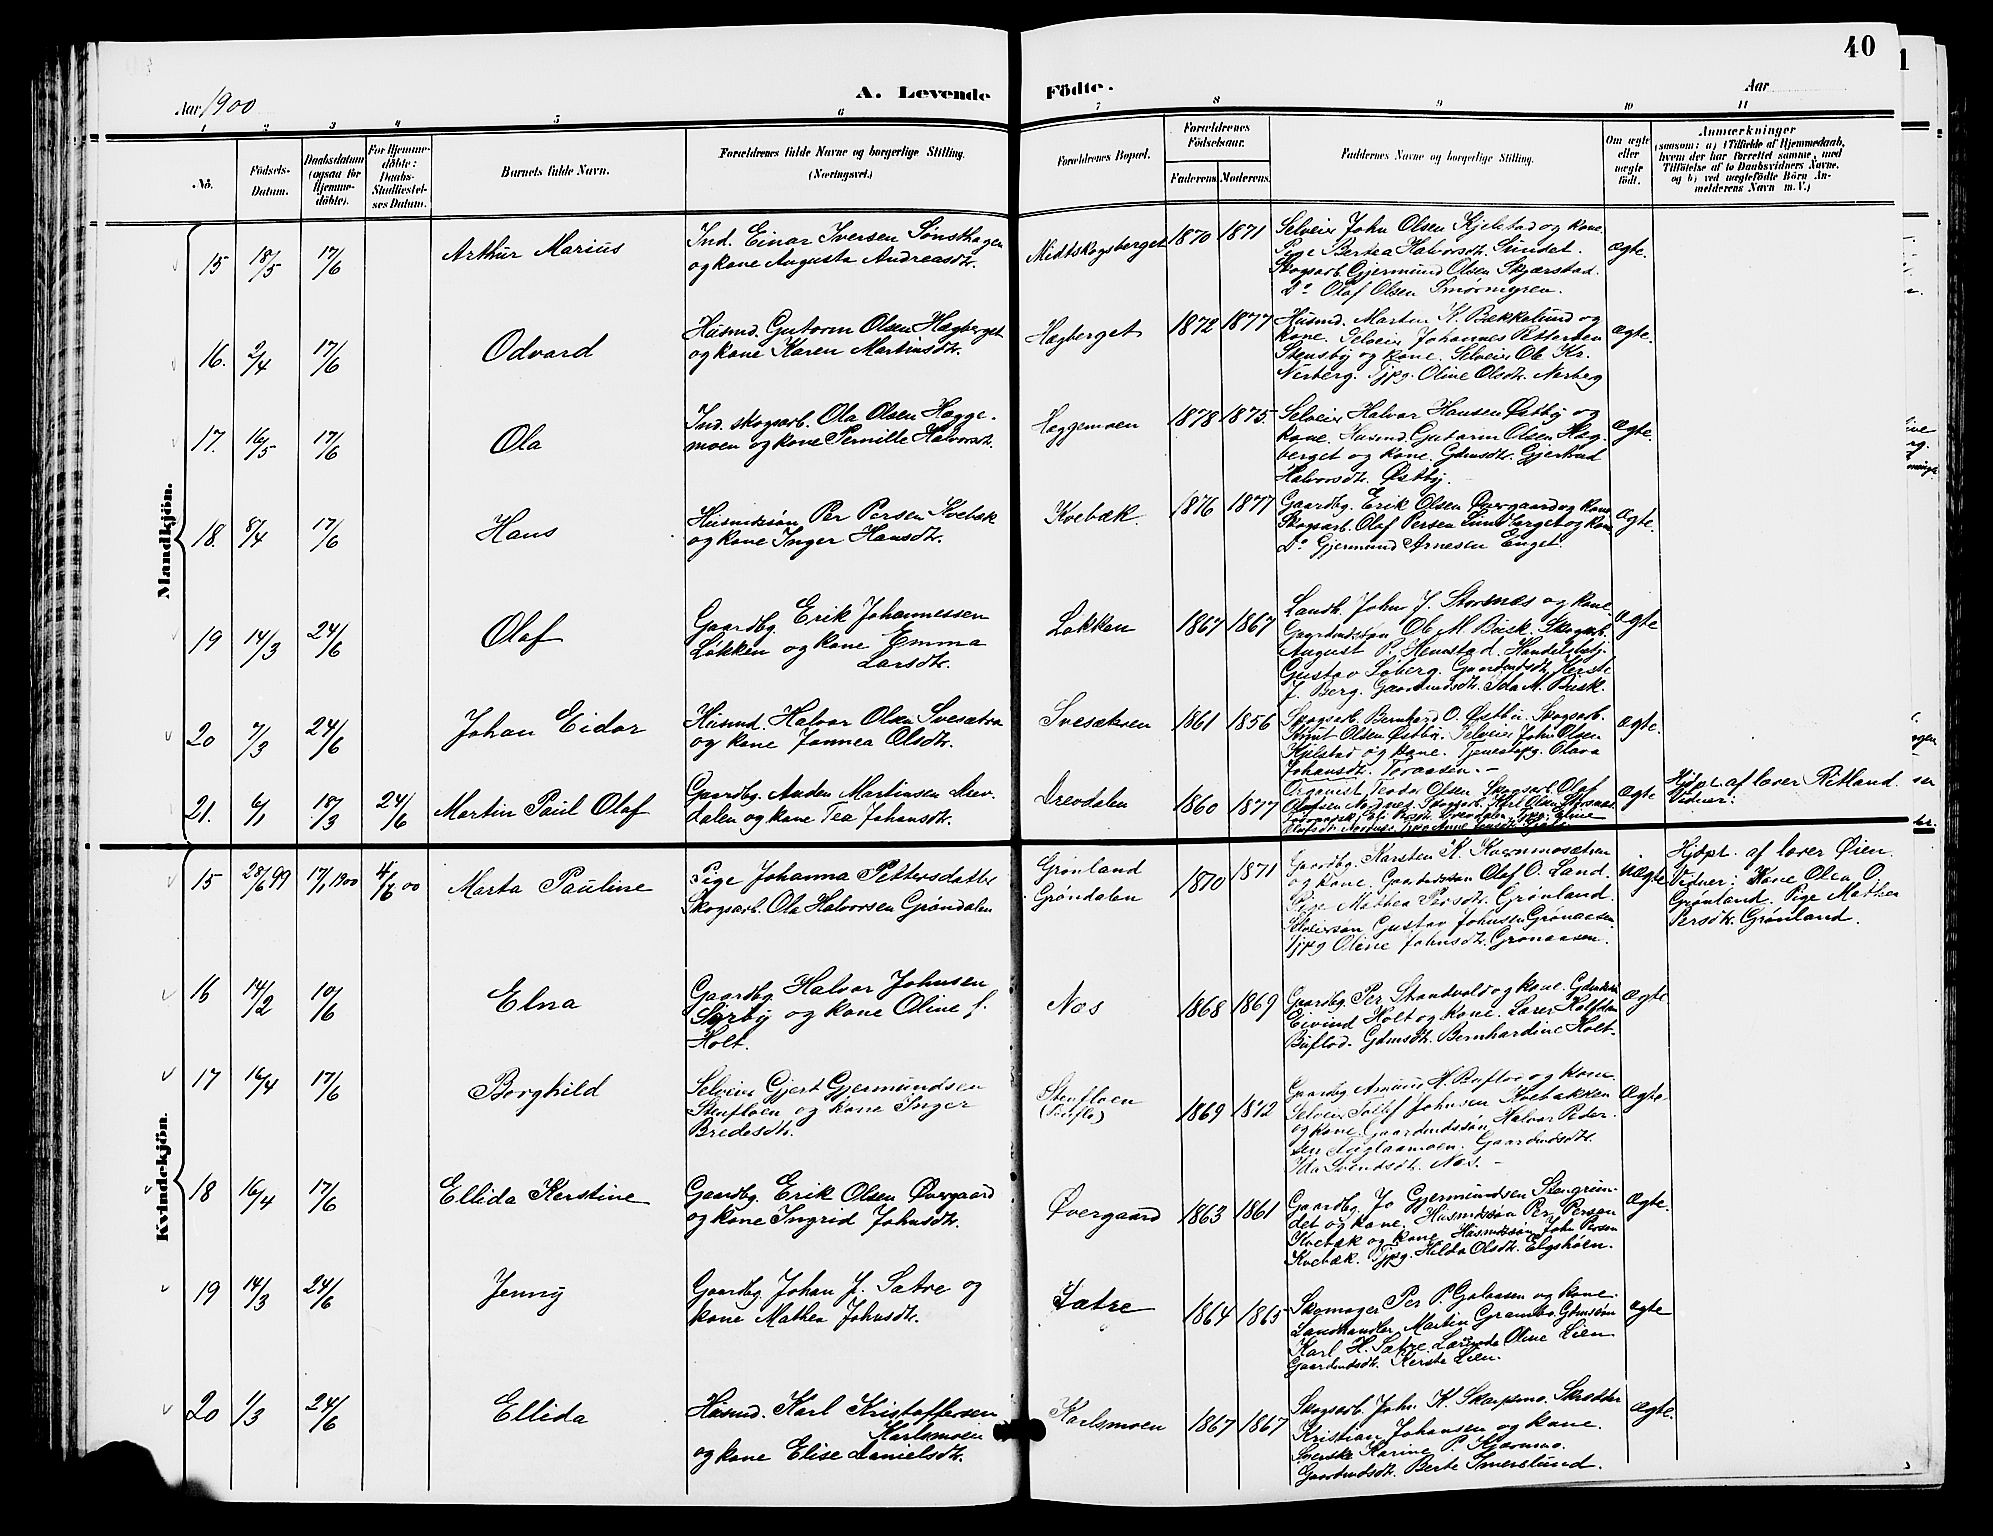 40
Aar 1900
A. Levende Födte.
Aar
1 2 3 4 5 6 7 8 9 10 11
No.
Födsels-Datum.
Daabsdatum (ogsaa for Hjemme-döbte).
For Hjemme-döbte: Daabs-Stadfæstel-ses Datum.
Barnets fulde Navn.
Forældrenes fulde Navne og borgerlige Stilling. (Næringsvei.)
Forældrenes Bopæl.
Forældrenes Födselsaar.
Faderens. Moderens.
Faddernes Navne og borgerlige Stilling.
Om ægte eller uægte födt.
Anmærkninger
(saasom: a) i Tilfælde af Hjemmedaab,
hvem der har forrettet samme, med
Tilföielse af to Daabsvidners Navne,
og b) ved uægtefödte Börn An-
melderens Navn m. V.)
Mandkjön.
15 18/5 17/6 Arthur Marius
Ind. Einar Iversen Sønsthagen
og kone Augusta Andreasdtr.
Midtskogsberget 1870 1871
Selveier John Olsen Kjelstad og kone.
Pige Bertea Halvorsdtr. Sundet.
Skogsarb. Gjermund Olsen Skjærstad.
Do Olaf Olsen Smørmyren.
ægte.
16. 2/4 17/6 Odvard
Husmd. Gutorm Olsen Hægberget
og kone Karen Martinsdtr.
Hægberget 1872 1877
Husmd. Martin K. Bækkelund og
kone. Selveier Johannes Pettersen
Stensby og kone. Selveier Ole Kr.
Nerberg. Tjpg. Oline Olsdtr. Nerberg
ægte.
17. 16/5 17/6 Ola
Ind. skogsarb. Ola Olsen Hægge-
moen og kone Pernille Halvorsdtr.
Hæggemoen 1878 1875.
Selveier Halvor Hansen Østby og
kone. Husmd. Gutorm Olsen Hæg-
berget og kone. Gdmsdtr. Gjertrud
Halvorsdtr. Østby.
ægte.
18. 8/4 17/6 Hans
Husmdssøn Per Persen Kvebæk
og kone Inger Hansdtr.
Kvebæk. 1876 1877
Gaardbg. Erik Olsen Øvergaard og kone
Skogsarb. Olaf Persen Lundberget og kone
Do Gjermund Arnesen Enget.
ægte.
19 14/3 24/6 Olaf
Gaardbg. Erik Johannessen
Løkken og kone Emma
Larsdtr.
Løkken 1867 1867
Landh. John J. Storenes og kone.
Gaardmdssøn Ole M. Busk. Skogsarb.
August P. Hemstad. Handelsbetj.
Gustav Søberg. Gaardmdsdtr. Kersti
J. Berg. Gaardmdsdtr. Ida M. Busk.
ægte
20 7/3 24/6 Johan Eidor
Husmd. Halvor Olsen Svesætra
og kone Jonnea Olsdtr.
Svesæteren 1861 1856
Skogsarb. Bernhard O. Østby. Skogsarb.
Knut Olsen Østby. Selveier John Olsen
Kjelstad og kone. Tjenestepg. Olava
Johansdtr. Toraasen.
ægte.
21. 6/1 18/3 24/6 Martin Paul Olaf
Gaardbg. Anders Martinsen Drev-
dalen og kone Tea Johansdtr.
Drevdalen 1860 1877
Organist Teodor Olsen. Skogsarb. Olaf
ægte
Hjdpt. af lærer Ritland.
Vidner:
Kvindekjön.
15 28/6 99 17/1 1900 4/6 00 Marta Pauline
Pige Johanna Pettersdatter
Skogsarb. Ola Halvorsen Grøndalen
Grønland
Grøndalen 1870 1871
Gaardbg. Karsten K. Kvernmosæteren
og kone. Gaardmdssøn Olaf O. Land.
Pige Mathea Persdtr. Grønland.
Selveiersøn Gustav Johnsen Grønaasen.
Tjpg Oline Johnsdtr. Grønaasen.
uægte
Hjdpt. af lærer Øien.
Vidner: Kone Olea O.
Grønland. Pige Mathea
Persdtr. Grønland.
16 14/2 10/6 Elna
Gaardbg. Halvor Johnsen
Sørby og kone Oline f.
Holt.
Nos 1868 1869
Gaardbg Per Strandvold og kone.
Eivind Holt og kone. Lærer Halfdan
Buflod. Gdmsdtr. Bernhardine Holt.
ægte
17 16/4 17/6 Borghild
Selveier Gjert Gjermundsen
Stenfloen og kone Inger
Bredesdtr.
Stenfloen 1869 1872
Gaardbg Amuns H. Buflod og kone.
Selveier Tollef Johnsen Kvebakken
og kone. Gaardmdssøn Halvor Peder-
sen Nyplasmoen. Gaardmdsdtr.
Ida Svendsdtr. Nos.
Ægte.
18 16/4 17/6 Ellida Kerstine
Gaardbg. Erik Olsen Øvergaard
og kone Ingrid Johnsdtr.
Øvergaard 1863 1861
Gaardbg. Jo Gjermundsen Stengrun-
det og kone. Husmdssøn Per Persen
Kvebæk og kone. Husmdssøn John Persen
Kvebæk. Tjpg. Hilda Olsdtr. Elgshøen.
Ægte.
19 14/3 24/6 Jenny
Gaardbg Johan J. Sætre og
kone Mathea Johnsdtr.
Sætre 1864 1865
Skomager Per P. Galaasen og kone.
Landhandler Martin Grambo. Gdmssøn
Karl H. Sætre. Lærerinde Oline Lien
Gaardmdsdtr. Kersti Lien.
ægte
20 1/3 24/6 Ellida
Husmd. Karl Kristoffersen
Karlsmoen
og kone Elise Danielsdtr.
Karlsmoen 1867 1867
Skogsarb. Johs. K. Skarpmo. Skrædder
Kristian Johansen og kone.
Svenske Karine P. Kjærnmo.
Gaardmdsdtr. Berte Smerslund.
ægte.